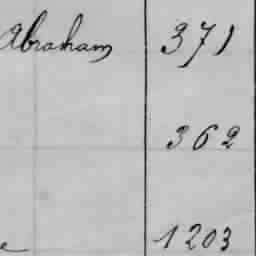 Abraham 371
362
e 1203